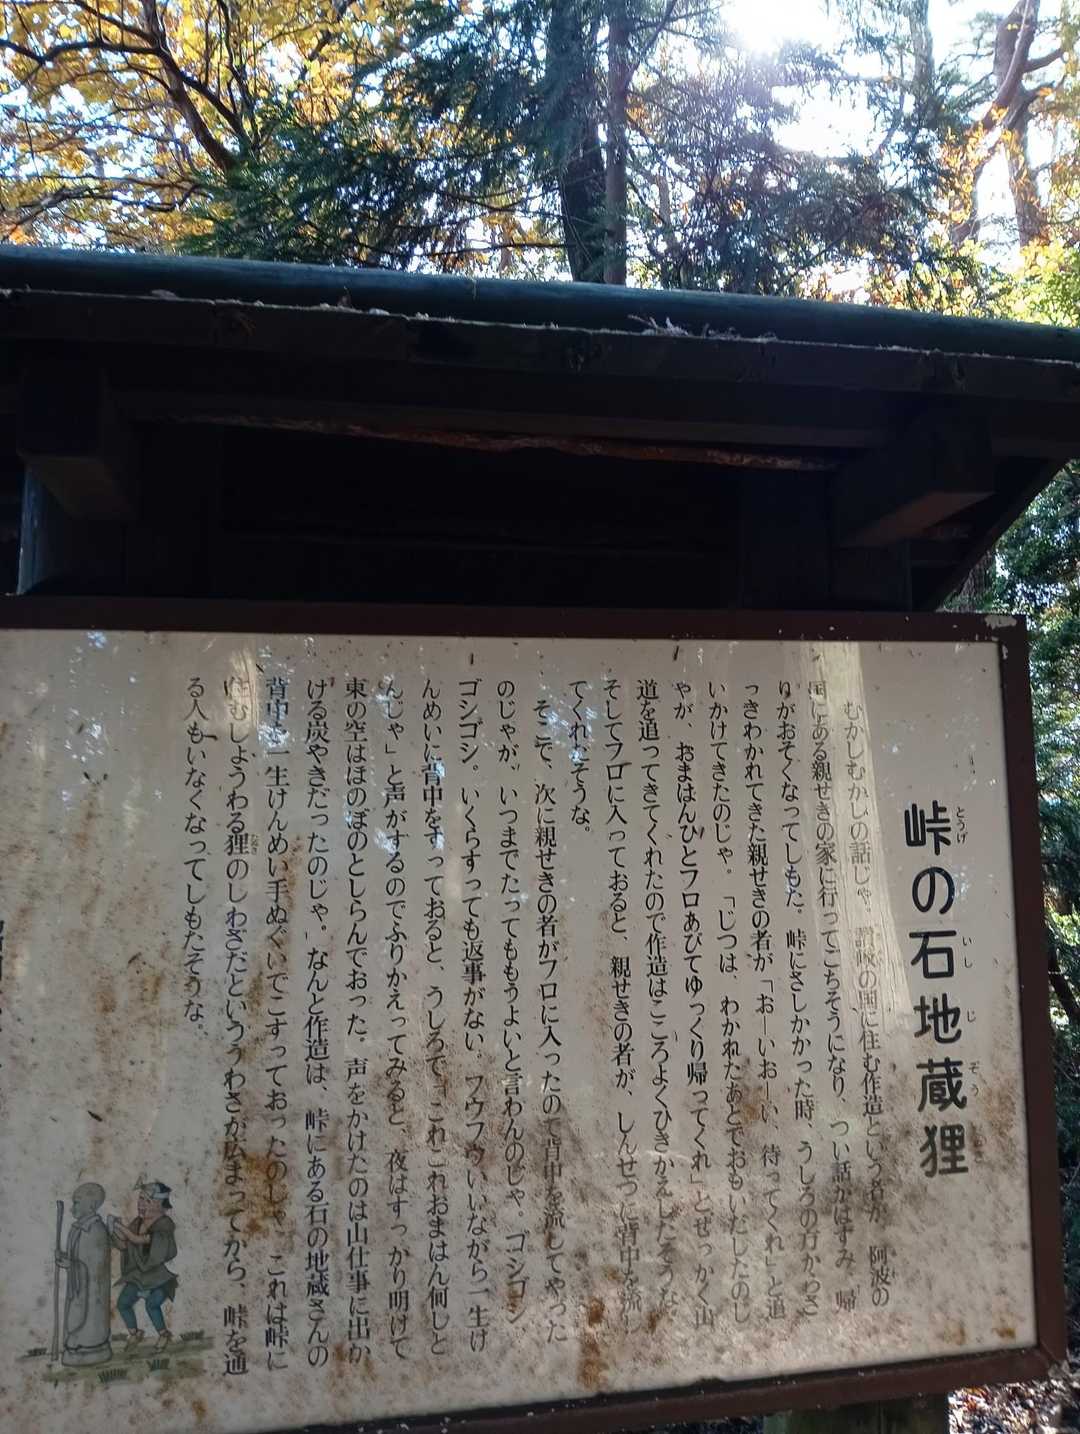 峠の石地蔵狸
とうげ いし じ ぞう
むかしむかしの話じゃ。讃岐の国に住む作造という者が、阿波の
国にある親せきの家に行ってごちそうになり、つい話がはずみ、帰
りがおそくなってしもた。峠にさしかかった時、うしろの方からさ
っきわかれてきた親せきの者が「おーいおーい、待ってくれ」と追
いかけてきたのじゃ。「じつは、わかれたあとでおもいだしたのじ
ゃが、おまはんひとフロあびてゆっくり帰ってくれ」とぜっかく山
道を追ってきてくれたので作造はこころよくひきかえしたそうな。
そしてフロに入っておると、親せきの者が、しんせつに背中を流し
てくれたそうな。
そこで、次に親せきの者がフロに入ったので背中を流してやった
のじゃが、いつまでたってももうよいと言わんのじゃ。ゴシゴシ
ゴシゴシ。いくらすっても返事がない。フウフウいいながら一生け
んめいに背中をすっておると、うしろで「これこれおまはん何しと
んじゃ」と声がするのでふりかえってみると、夜はすっかり明けて
東の空はほのぼのとしらんでおった。声をかけたのは山仕事に出か
ける炭やきだったのじゃ。なんと作造は、峠にある石の地蔵さんの
背中を一生けんめい手ぬぐいでこすっておったのじゃ。これは峠に
住むしょうわる狸のしわざだといううわさが広まってから、峠を通
たぬき
る人もいなくなってしもたそうな。